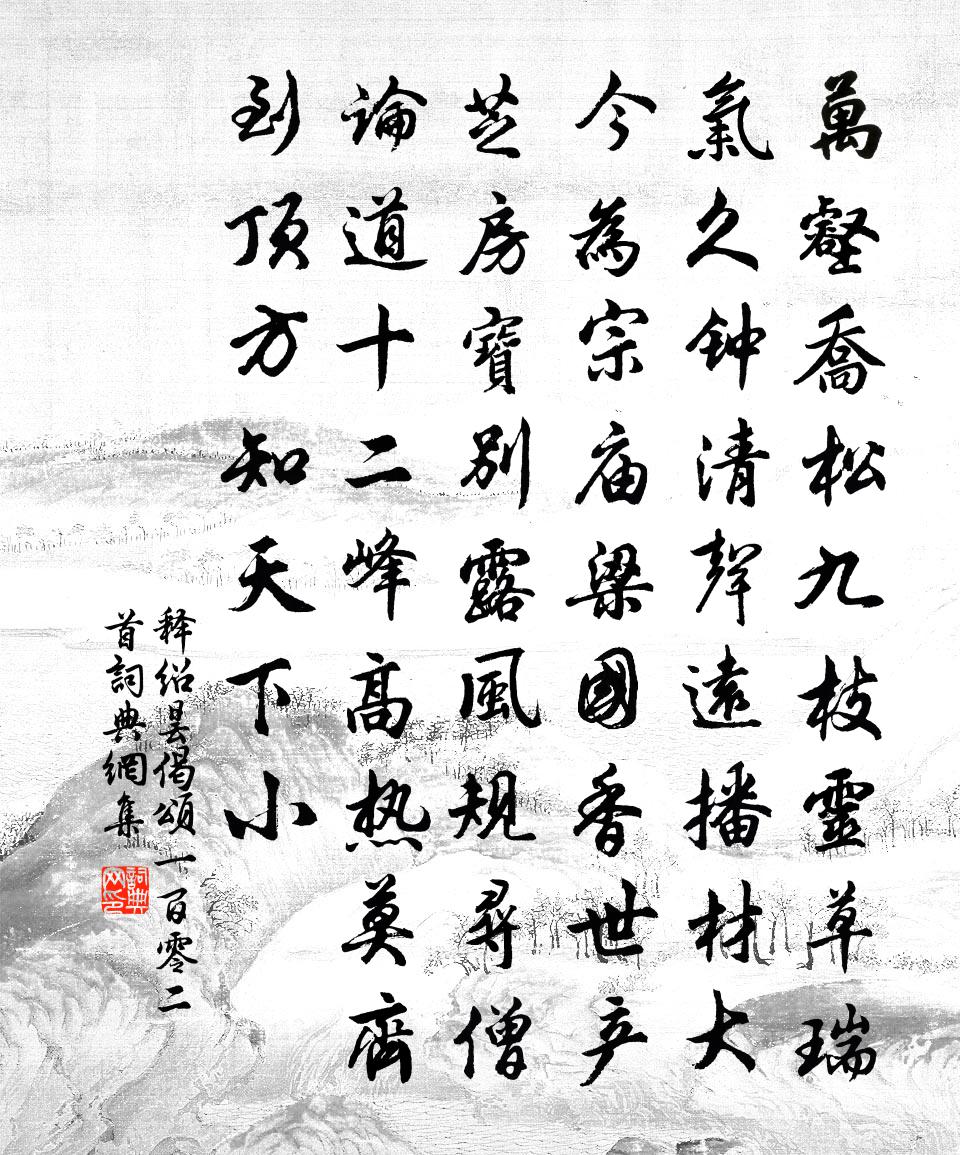 萬壑喬松九枝靈草瑞
氣久钟清聲遠播材大
今為宗庙梁國香世产
芝房寶别露風規尋僧
論道十二峰高热莫齊
到頂方知天下小
释绍昙偈頌一百零二
首詞典網集
詞典网印